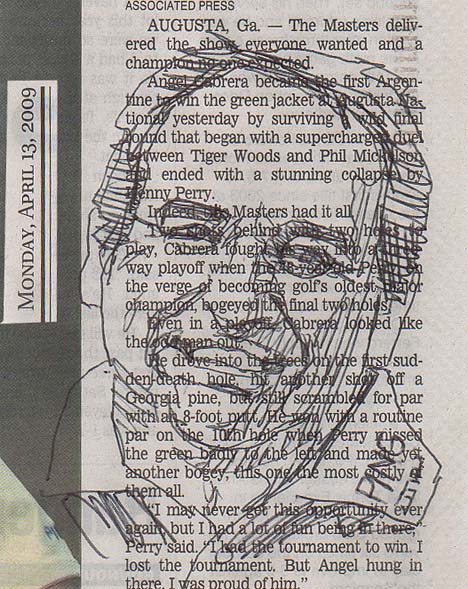 ASSOCIATED PRESS
AUGUSTA, Ga. — The Masters deliv-
ered the show everyone wanted and a
champion no one expected.
Angel Cabrera became the first Argen-
tine to win the green jacket at Augusta Na-
tional yesterday by surviving a wild final
round that began with a supercharged duel
between Tiger Woods and Phil Mickelson
and ended with a stunning collapse by
Kenny Perry.
Indeed, this Masters had it all.
Two shots behind with two holes to
play, Cabrera fought his way into a
way playoff when the 48-year-old Perry, on
the verge of becoming golf's oldest major
champion, bogeyed the final two holes.
Even in a playoff, Cabrera looked like
the odd man out.
He drove into the trees on the first sud-
den-death hole, hit another shot off a
Georgia pine, but still scrambled for par
with an 8-foot putt. He won with a routine
par on the 10th hole when Perry missed
the green badly to the left and made yet
another bogey, this one the most costly of
them all.
"I may never get this opportunity ever
again, but I had a lot of fun being in there,"
Perry said. "I had the tournament to win. I
lost the tournament. But Angel hung in
there. I was proud of him."
MONDAY, APRIL 13, 2009
PING